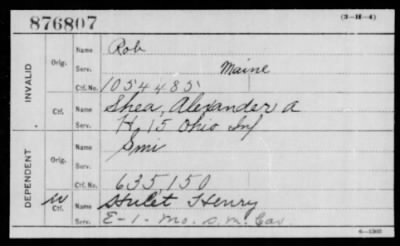 876807
(3-H-4)
INVALID
Orig.
Name Rob
Serv. Maine
Ctf. No. 1054485
Ctf.
Name Shea, Alexander A
Serv. H, 15 Ohio Inf
DEPENDENT
Orig.
Name Smi
Serv.
Ctf. No. 635,150
W Ctf.
Name Hulet Henry
Serv. E-1-Mo. S.M. Cav